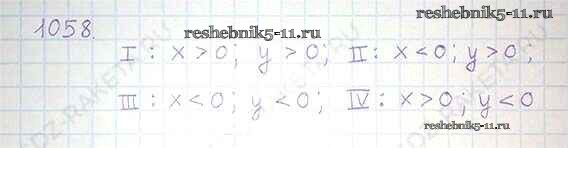 reshebnik5-11.ru
1058.
reshebnik5-11.ru
I : x > 0; y > 0; II : x < 0; y > 0;
III : x < 0; y < 0; IV : x > 0; y < 0
reshebnik5-11.ru